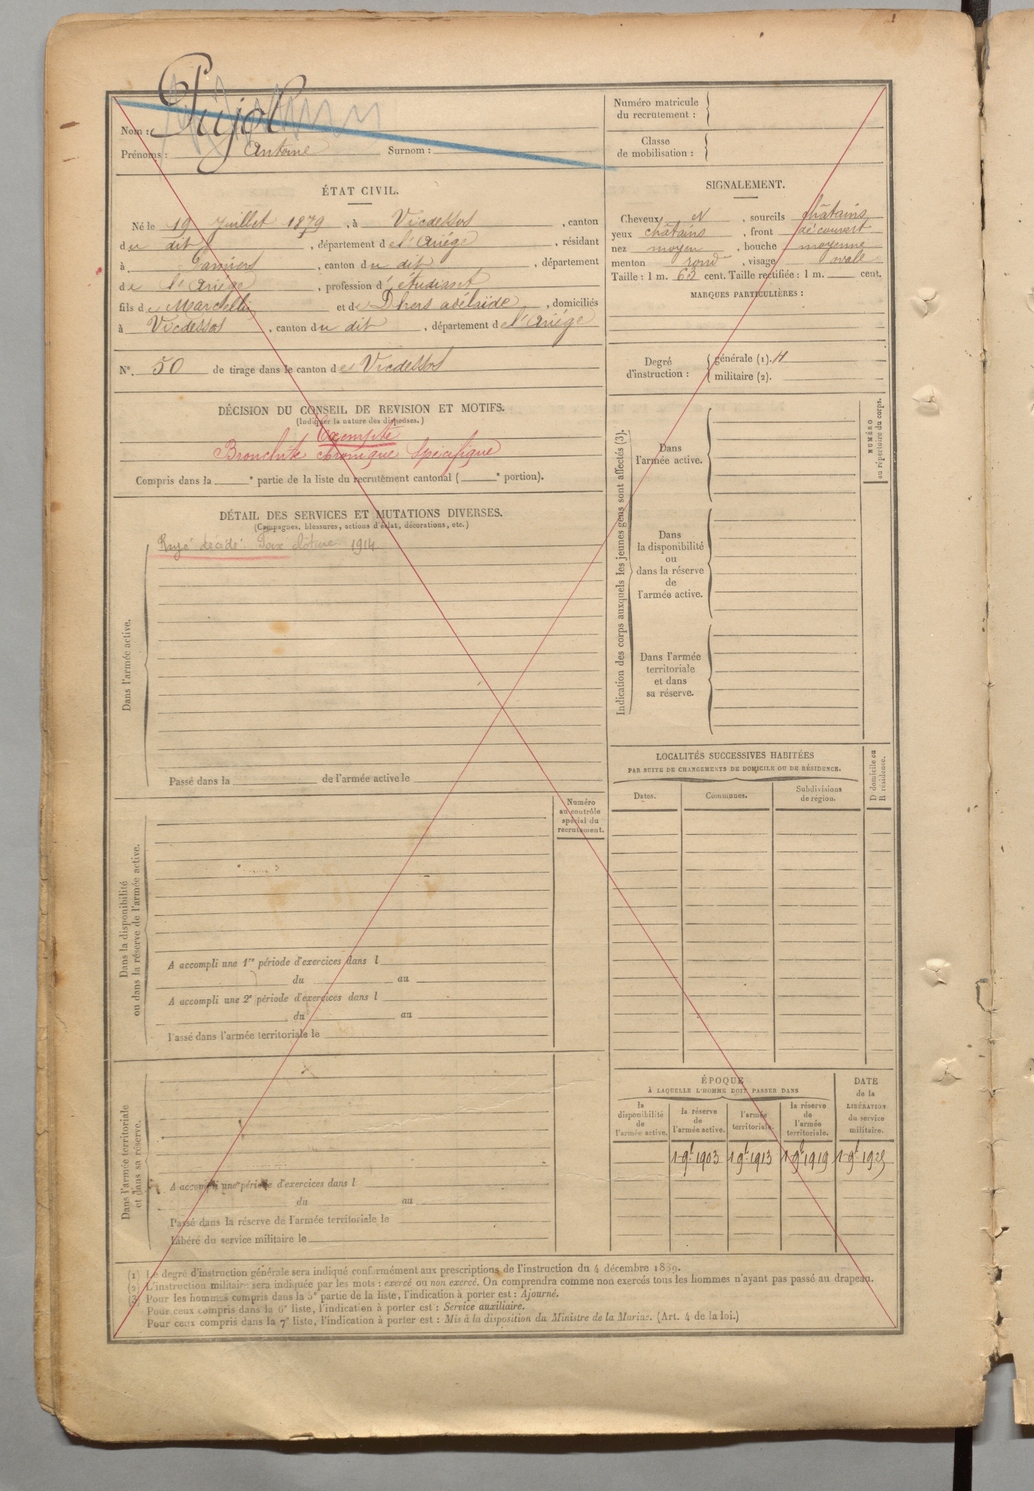 Nom : Pujol
Prénoms : Antoine Surnom :
Numéro matricule
du recrutement :
Classe
de mobilisation :
ÉTAT CIVIL.
Né le 19 Juillet 1879, à Vicdessos, canton
du dit, département de l'Ariége, résidant
à Pamiers, canton du dit, département
de l'Ariége, profession d'étudiant
fils de Marcelin et de Dhers adélaïde, domiciliés
à Vicdessos, canton du dit, département de l'Ariége
N° 50 de tirage dans le canton de Vicdessos
SIGNALEMENT.
Cheveux N, sourcils châtains
yeux châtains, front découvert
nez moyen, bouche moyenne
menton rond, visage ovale
Taille : 1 m. 63 cent. Taille rectifiée : 1 m. cent.
MARQUES PARTICULIÈRES :
Degré
d'instruction :
générale (1).
militaire (2).
DÉCISION DU CONSEIL DE REVISION ET MOTIFS.
(Indiquer la nature des dispenses.)
Exempté
Bronchite chronique spécifique
Compris dans la e partie de la liste du recrutement cantonal ( e portion).
DÉTAIL DES SERVICES ET MUTATIONS DIVERSES.
(Campagnes, blessures, actions d'éclat, décorations, etc.)
décidé Foix clôture 1914
Dans l'armée active.
Passé dans la de l'armée active le
Indication des corps auxquels les jeunes gens sont affectés (3).
Dans
l'armée active.
Dans
la disponibilité
ou
dans la réserve
de
l'armée active.
Dans l'armée
territoriale
et dans
sa réserve.
NUMÉRO
au répertoire du corps.
LOCALITÉS SUCCESSIVES HABITÉES
PAR SUITE DE CHANGEMENTS DE DOMICILE OU DE RÉSIDENCE.
Dates. Communes. Subdivisions
de région.
D domicile ou
R résidence.
Numéro
au contrôle
spécial du
recrutement.
Dans la disponibilité
ou dans la réserve de l'armée active.
A accompli une 1re période d'exercices dans l
du au
A accompli une 2e période d'exercices dans l
du au
Passé dans l'armée territoriale le
Dans l'armée territoriale
et dans sa réserve.
A accompli une période d'exercices dans l
du au
Passé dans la réserve de l'armée territoriale le
Libéré du service militaire le
ÉPOQUE
À LAQUELLE L'HOMME DOIT PASSER DANS
la
disponibilité
de
l'armée active.
la réserve
de
l'armée active.
l'armée
territoriale.
la réserve
de
l'armée
territoriale.
DATE
de la
LIBÉRATION
du service
militaire.
1 9bre 1903 1 9bre 1913 1 9bre 1919 1 9bre 1925
(1) Le degré d'instruction générale sera indiqué conformément aux prescriptions de l'instruction du 4 décembre 1889.
(2) L'instruction militaire sera indiquée par les mots : exercé ou non exercé. On comprendra comme non exercés tous les hommes n'ayant pas passé au drapeau.
(3) Pour les hommes compris dans la 5e partie de la liste, l'indication à porter est : Ajourné.
Pour ceux compris dans la 6e liste, l'indication à porter est : Service auxiliaire.
Pour ceux compris dans la 7e liste, l'indication à porter est : Mis à la disposition du Ministre de la Marine. (Art. 4 de la loi.)